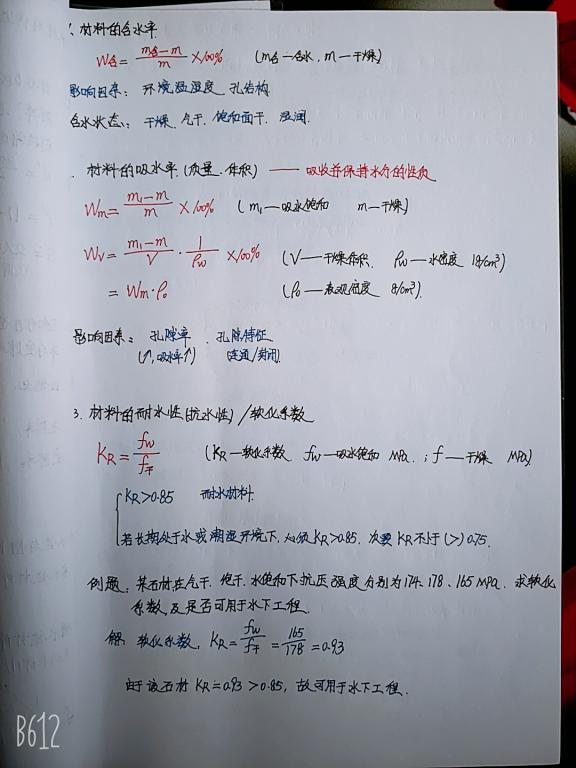 1、材料的含水率.
W含= m含-m/m ×100% (m含—含水, m—干燥)
影响因素: 环境温湿度 孔结构
含水状态: 干燥、气干、饱和面干、湿润.
. 材料的吸水率.(质量、体积) —— 吸收并保持水分的性质
Wm= m1-m/m ×100% (m1—吸水饱和 m—干燥)
Wv= m1-m/V · 1/ρw ×100% (V—干燥体积. ρw—水密度 1g/cm³)
= Wm·ρ0 (ρ0—表观密度 g/cm³).
影响因素: 孔隙率 、孔隙特征
(↑, 吸水率↑) (连通/封闭)
3. 材料的耐水性(抗水性)/软化系数
KR= fw/f干 (KR—软化系数 fw—吸水饱和 MPa. ; f—干燥 MPa)
KR>0.85 耐水材料.
若长期处于水或潮湿环境下, 必须KR>0.85. 次要 KR不小于(>)0.75.
例题. 某石材在气干、绝干、水饱和下抗压强度分别为174、178、165MPa. 求软化
系数,及是否可用于水下工程.
解: 软化系数, KR= fw/f干 = 165/178 =0.93
由于该石材 KR=0.93>0.85, 故可用于水下工程.
B612